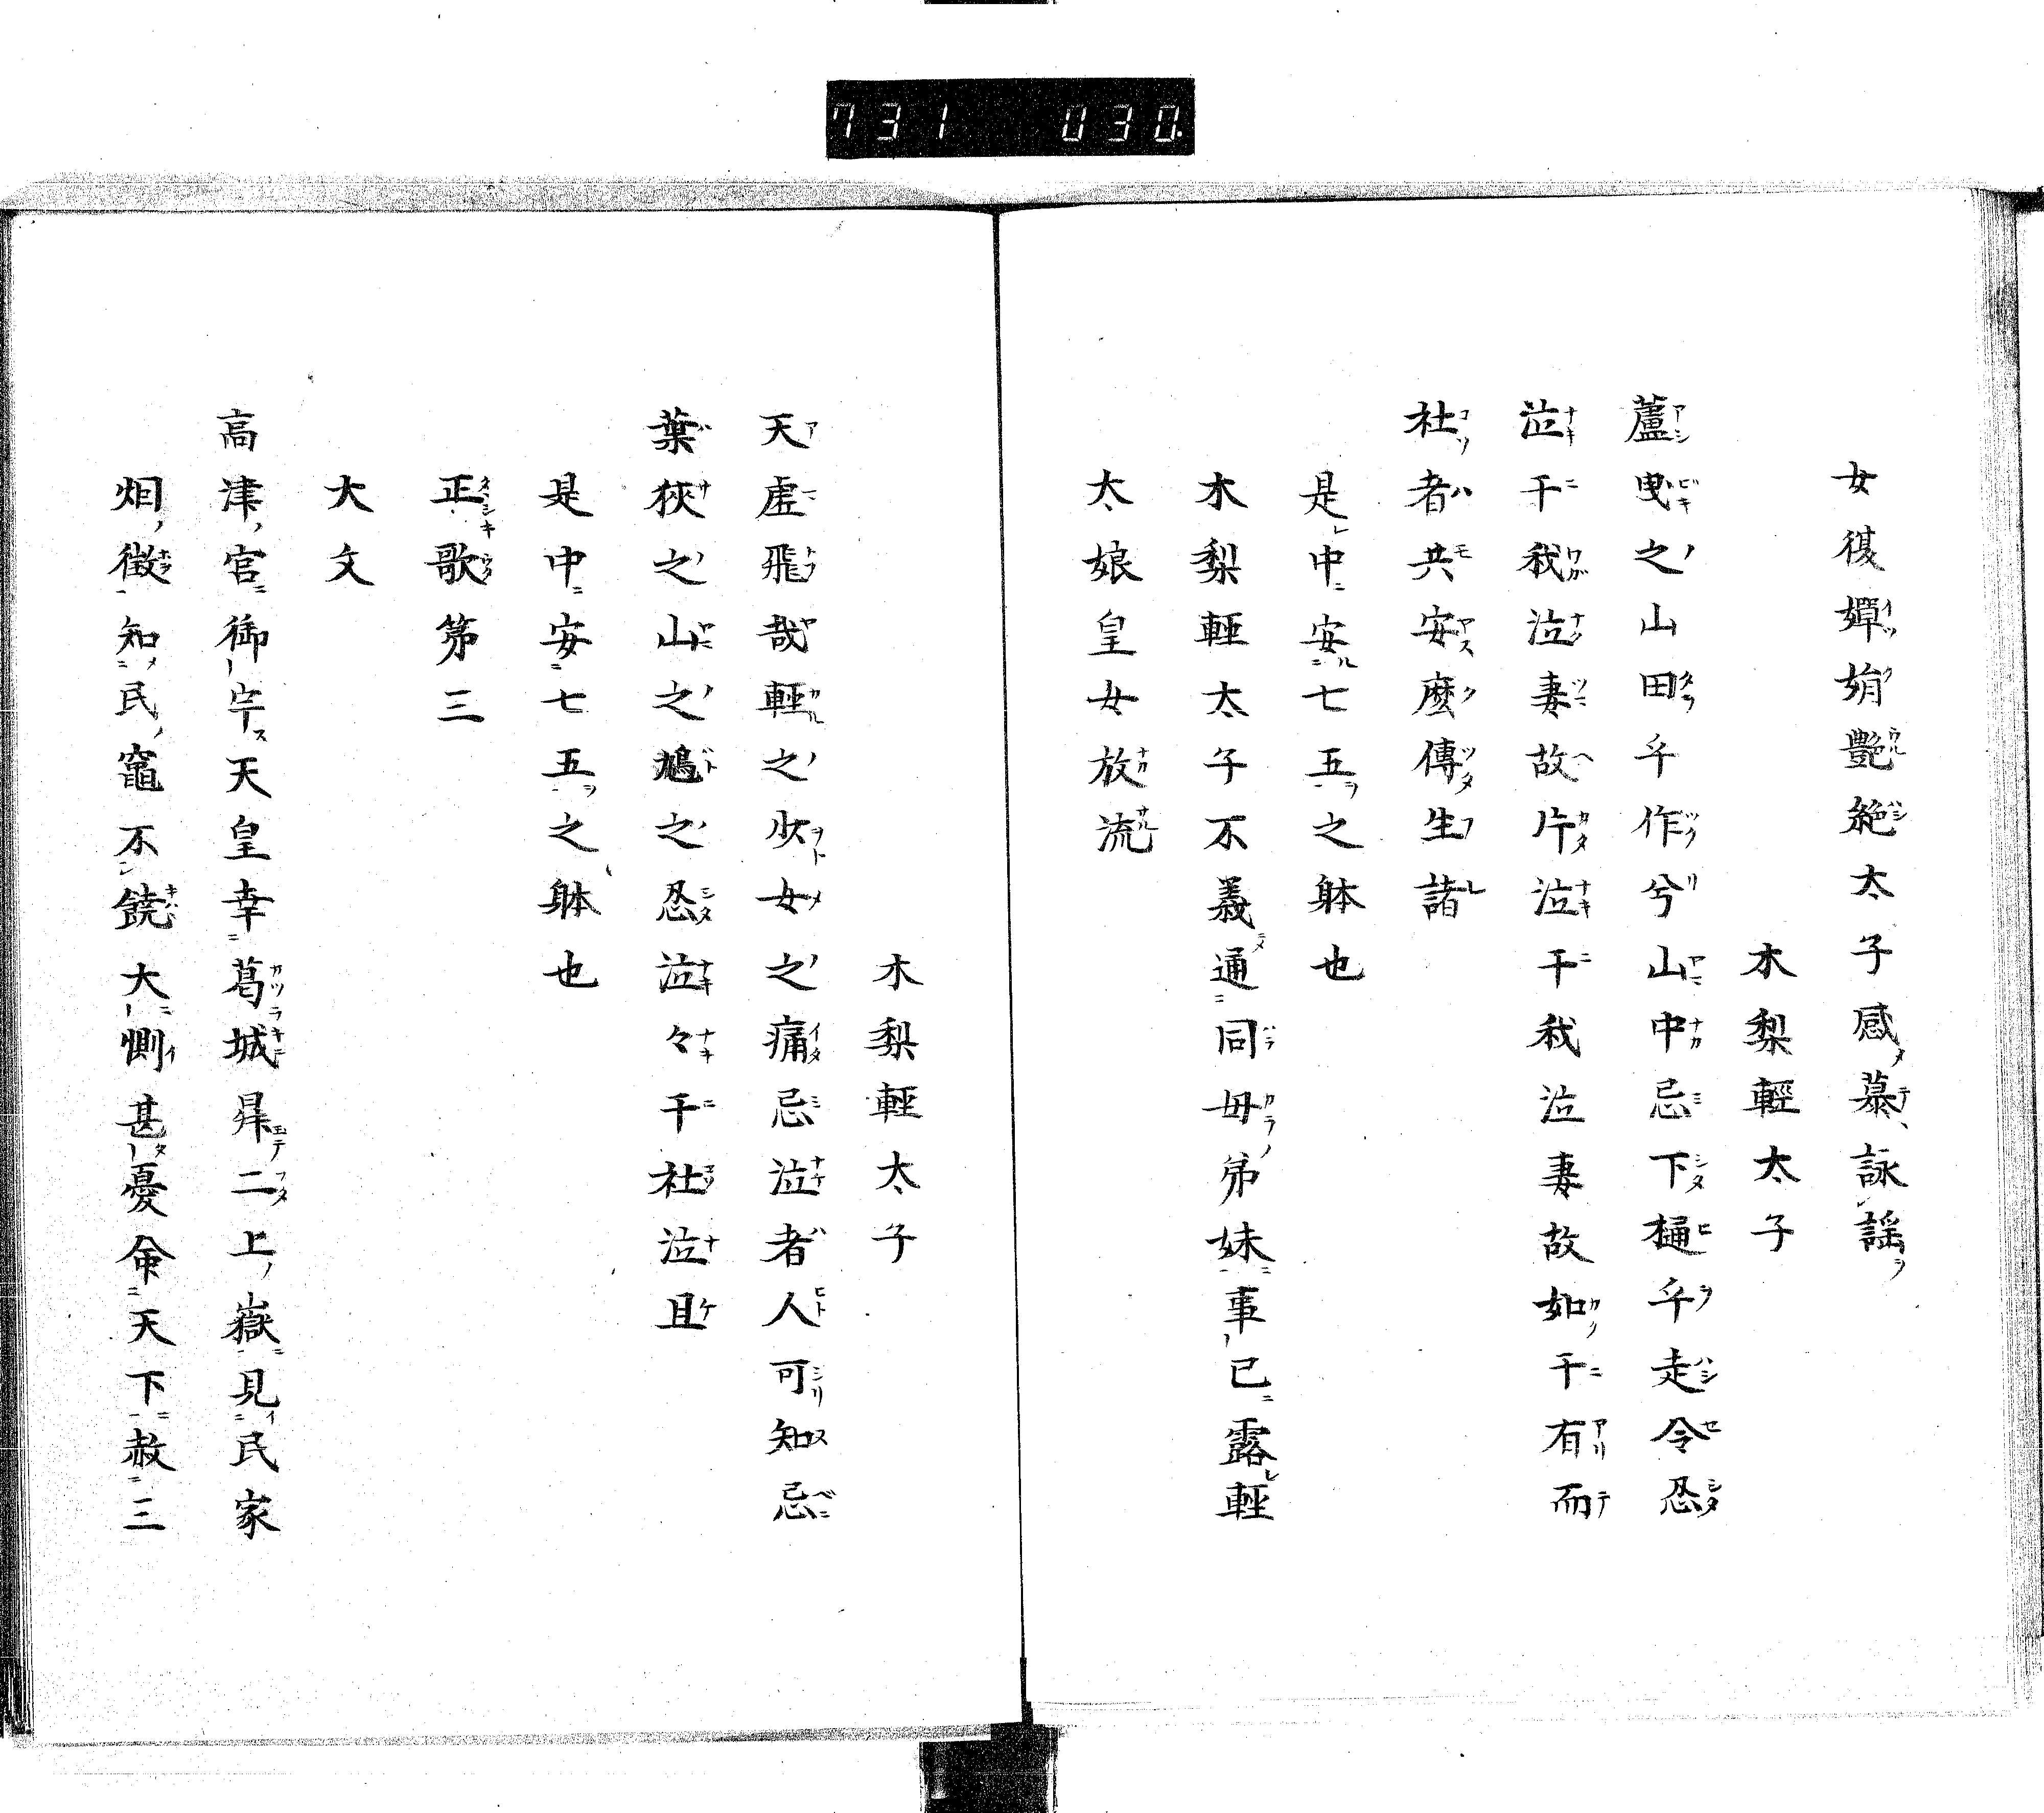 731 030
女復嬋娟艷絶太子感慕詠謡
木梨輕太子
蘆曳之山田乎作兮山中忌下樋乎走令忍
泣千我泣妻故片泣千我泣妻故如千有而
社者共安麼傳生諸
是中安七五之躰也
木梨輕太子不義通同毋弟妹事已露輕
太娘皇女放流
木梨輕太子
天虚飛哉輕之少女之痛忌泣者人可知忌
葉狹之山之鳩之忍泣々千社泣且
是中安七五之躰也
正歌第三
大文
高津宮御宇天皇幸葛城昇二上嶽見民家
烟徴知民竈不饒大惻甚憂命天下赦三